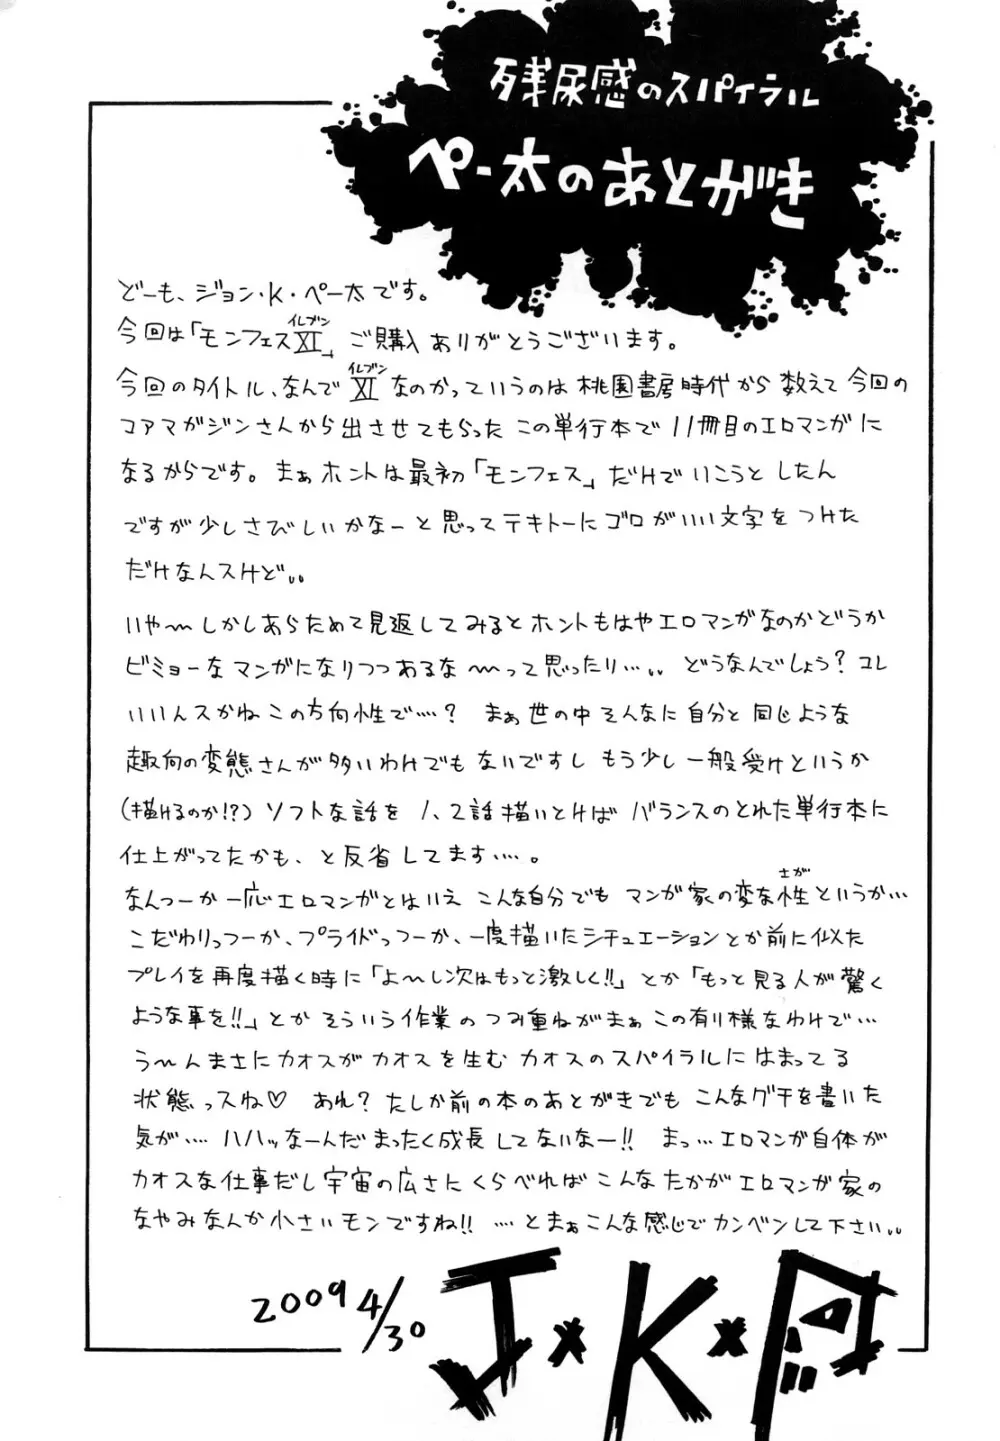 残尿感のスパイラル
ペー太のあとがき
どーも、ジョン・K・ペー太です。
今回は「モンフェスXI」ご購入ありがとうございます。
イレブン
今回のタイトル、なんでXIなのかっていうのは桃園書房時代から数えて今回の
イレブン
コアマガジンさんから出させてもらったこの単行本で11冊目のエロマンガに
なるからです。まぁホントは最初「モンフェス」だけでいこうとしたん
ですが少しさびしいかなーと思ってテキトーにゴロがいい文字をつけた
だけなんスけど。。
いや〜しかしあらためて見返してみるとホントもはやエロマンガなのかどうか
ビミョーなマンガになりつつあるな〜って思ったり…。。どうなんでしょう?コレ
いいんスかねこの方向性で…?まぁ世の中そんなに自分と同じような
趣向の変態さんが多いわけでもないですしもう少し一般受けというか
(描けるのか!?)ソフトな話を1、2話描いとけばバランスのとれた単行本に
仕上がってたかも、と反省してます…。
なんつーか一応エロマンガとはいえこんな自分でもマンガ家の変な性というか…
さが
こだわりっつーか、プライドっつーか、一度描いたシチュエーションとか前に似た
プレイを再度描く時に「よ〜し次はもっと激しく!!」とか「もっと見る人が驚く
ような事を!!」とかそういう作業のつみ重ねがまぁこの有り様なわけで…
う〜んまさにカオスがカオスを生むカオスのスパイラルにはまってる
状態っスね♡あれ?たしか前の本のあとがきでもこんなグチを書いた
気が…ハハッなーんだまったく成長してないなー!!まっ…エロマンガ自体が
カオスな仕事だし宇宙の広さにくらべればこんなたかがエロマンガ家の
なやみなんか小さいモンですね!!…とまぁこんな感じでカンベンして下さい。。
2009 4/30
J×K×P